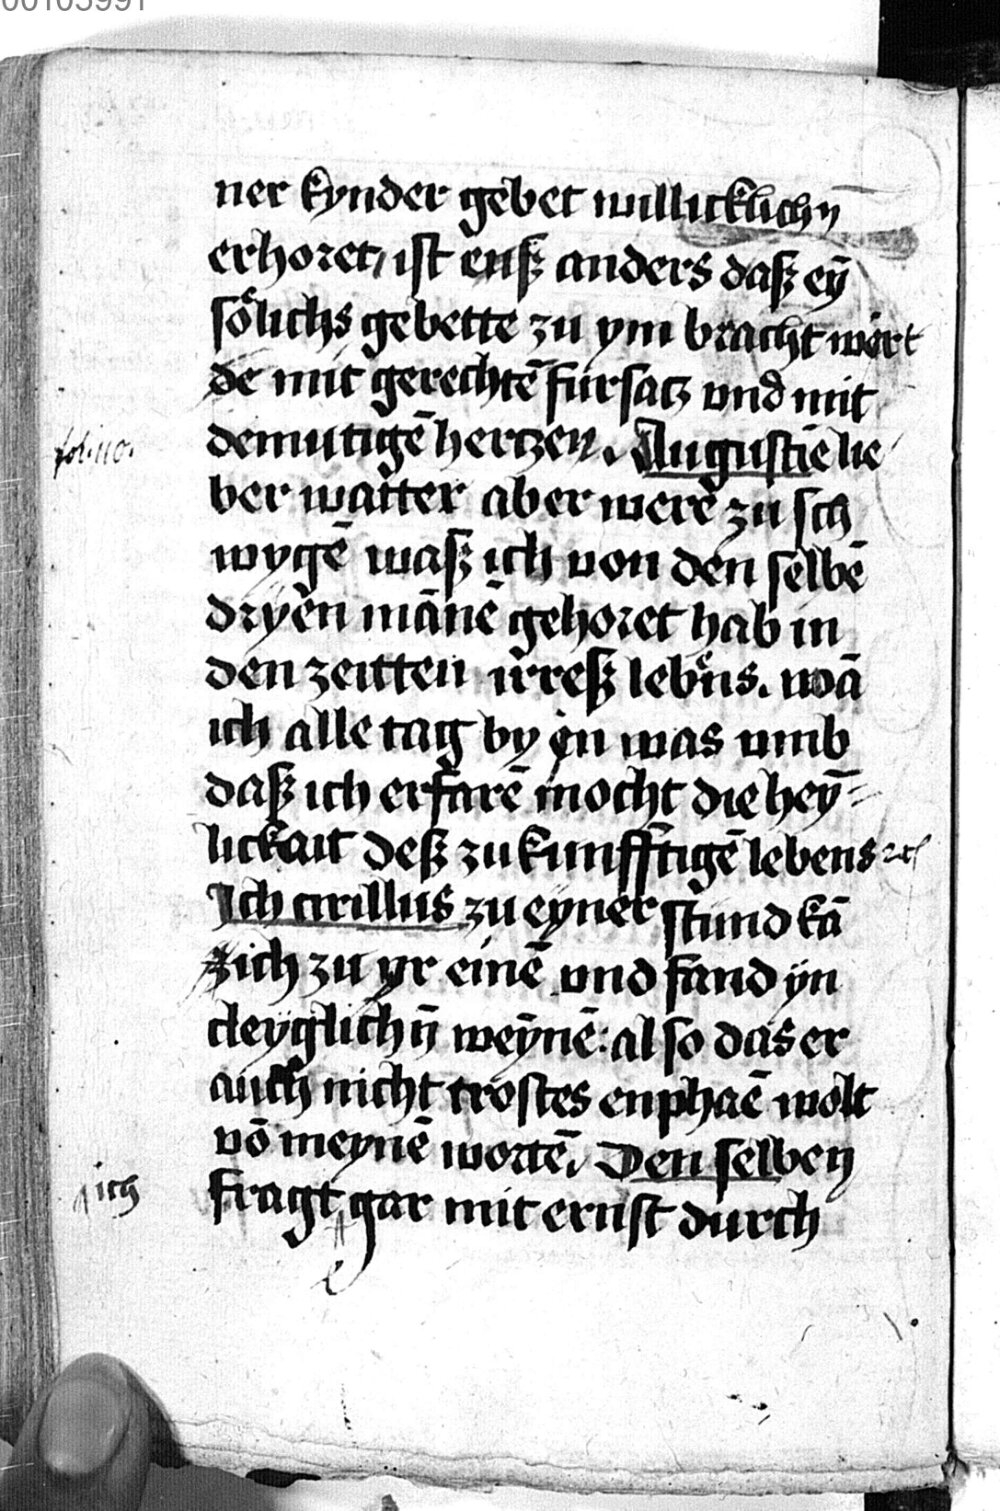 00105991
ner kynder gebet willicklichn
erhoret, ist euß anders daß eȳ
soͤlichs gebette zu ym bracht wert
de mit gerechtē fursatz vnd mit
demutigē hertzen. Augustīe lie
fol. 110.
ber watter aber were zu sch
wygē waß ich von den selbē
dryen mānē gehoret hab in
den zeitten irreß lebens. wā
ich alle tag by in was vmb
daß ich erfarē mocht die heȳ
lickait deß zukunfftigē lebens ꝛcͭ
Ich cirillus zu eyner stund kā
zich zu yr einē vnd fand yn
cleyglichn̄ weynē: also das er
auch nicht trostes enphaē wolt
vō meynē wortē. Den selben
ich
fragt gar mit ernst durch